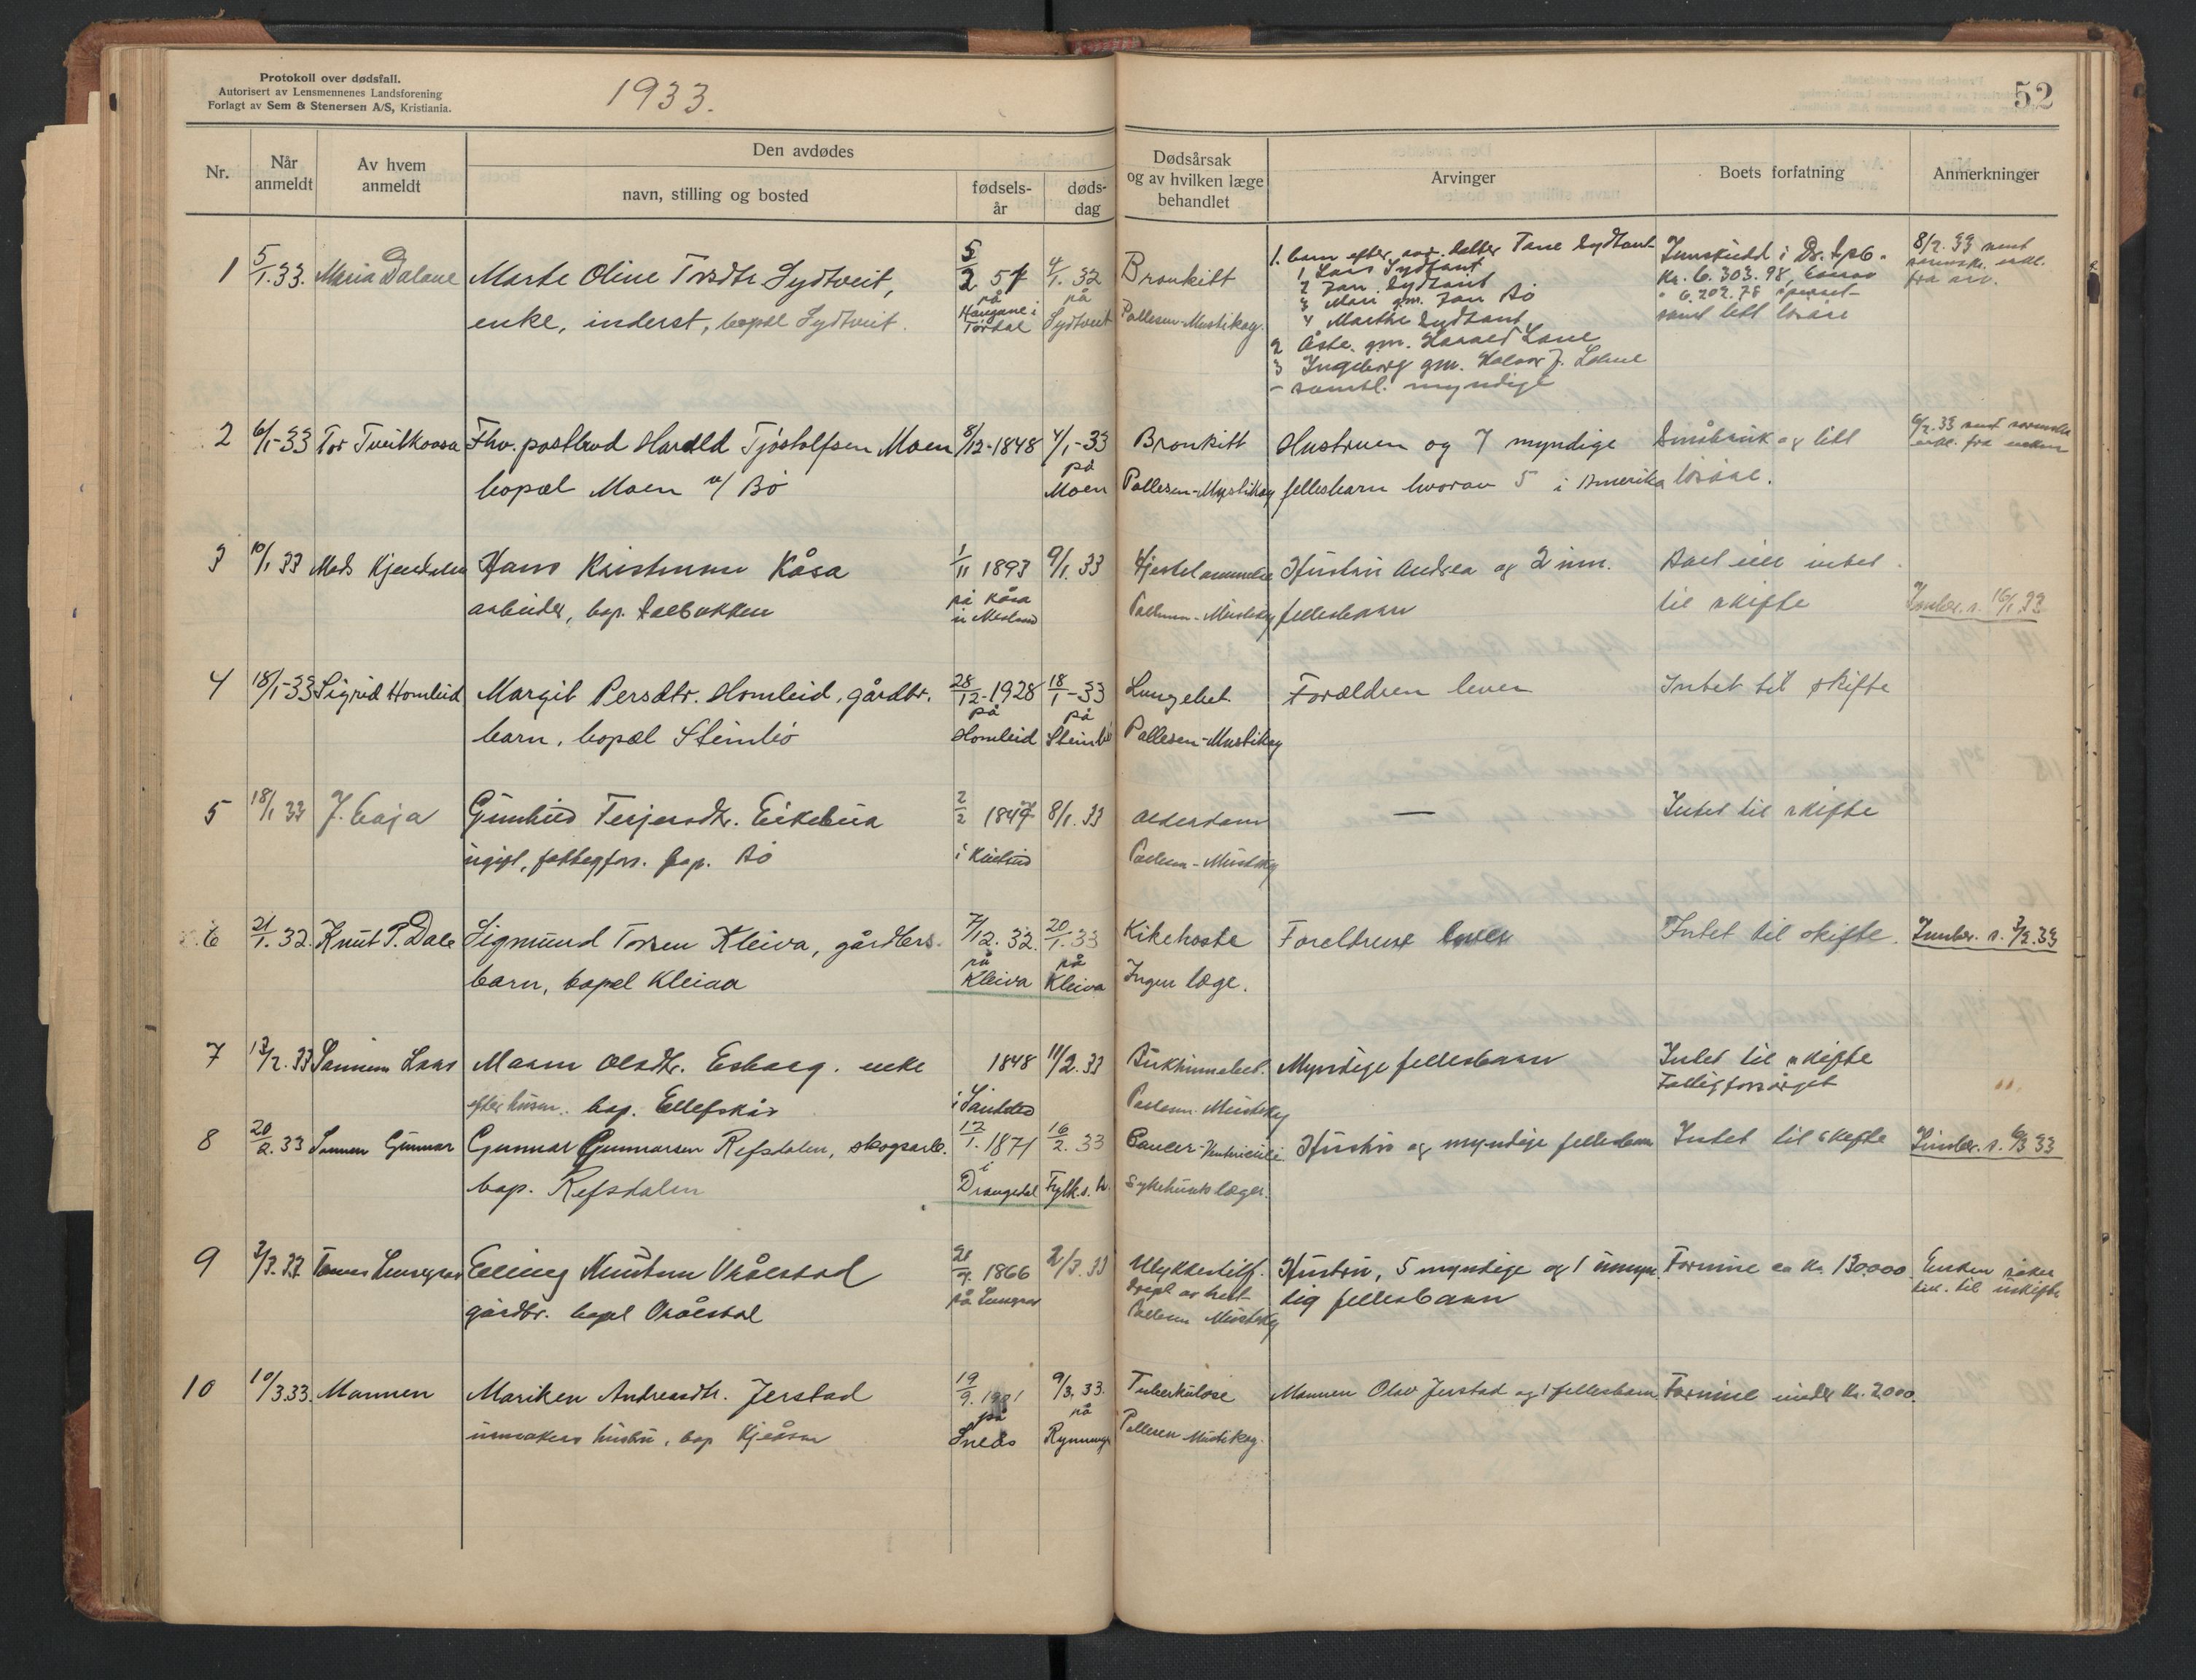 Protokoll over dødsfall.
Autorisert av Lensmennenes Landsforening
Forlagt av Sem & Stenersen A/S, Kristiania.
1933.
52
Nr.
Når anmeldt
Av hvem anmeldt
Den avdødes
navn, stilling og bosted
fødsels-år
døds-dag
Dødsårsak og av hvilken læge behandlet
Arvinger
Boets forfatning
Anmerkninger
1 5/1.33. Maria Dalane Marte Oline Torsdtr Sydtveit, 5/2 57 4/1.32 Bronkitt 1. barn efter avd. datter Tone Sydtveit Innskudd i Dr. Spb. 8/2.33
enke, inderst, bopæl Sydtveit. på Haugane i Tørdal på Sydtveit Pallesen-Mustikay. 1 Lars Sydtveit Kr. 6.303.98,
2 Jan Sydtveit 6.202.78
3 Mari gm. Jan Bö samt litt lösöre
4 Marthe Sydtveit
2 Åste gm. Harald Lane
3 Ingeborg gm. Halvor J. Lohne
- samtl. myndige
2 6/1-33 Tor Tveitkaasa Fhv. postbud Harald Tjöstolfsen Moen 8/12-1848 4/1-33 Bronkitt Hustruen og 7 myndige Småbruk og litt 6/2.33
bopæl Moen v/ Bö på Moen Pallesen-Mustikay fellesbarn hvorav 5 i Amerika lösöre.
3 10/1 33 Mads Kjendalen Hans Kristensen Kåsa 1/11 1893 9/1.33 Hjertelammelse Hustru Andrea og 2 um. Boet eier intet
arbeider, bop. på Kåsa Pallesen-Mustikay fellesbarn til skifte Innber. s. 16/1 33
4 18/1-33 Sigrid Homleid Margit Persdtr. Homleid, gårdbr. 28/12-1928 18/1-33 Lungebet. Forældren lever Intet til skifte
barn, bopæl Steinbö på Homleid på Steinbö Pallesen-Mustikay
5 18/1 33 J. Gunhild Terjersdtr. Eikebua 2/2 1847 8/1.33 Alderdom — Intet til skifte
ugift, fattigfors. bop. Bö i Pallesen-Mustikay
6 21/1.32. Knut P. Dale Sigmund Torsen Kleiva, gårdbrs. 7/12.32 20/1.33 Kikehoste Foreldrene lever Intet til skifte. Innber. s. 3/2.33
barn, bopel Kleiva på Kleiva på Kleiva Ingen læge.
7 13/2.33 Sønnen Lars Maren Olsdtr. Esborg. enke 1848 11/2.33 Bukhinnebet. Myndige fellesbarn Intet til skifte
efter husm. bop. Ellefskås i Sauherad Pallesen-Mustikay Fattigforsörget
8 20/2.33 Sønnen Gunnar Gunnar Gunnarsen Refsdalen, skogsarb. 17/1.1871 16/2.33 Cancer Ventriculi Hustru og myndige fellesbarn Intet til skifte Innber. s. 6/3 33
bop. Refsdalen i Drangedal Fylk.s.h. Sykehusets læger.
9 3/3.33 Elling Knutsen Vrålstad 1866 2/3.33 Ulykkestilf. Hustru, 5 myndige og 1 umyn- Formue ca kr. 130.000. Enken söker
gårdbr. bopel Vrålstad på drept av hest dig fellesbarn till. til uskifte
Pallesen Mustikay
10 10/3.33. Mannen Mariken Andreasdtr. Jerstad 19/9. 9/3.33. Tuberkulose Mannen Olav Jerstad og 1 fellesbarn Formue under kr. 2000.
urmakers hustru, bop på Sneås på Pallesen Mustikay.